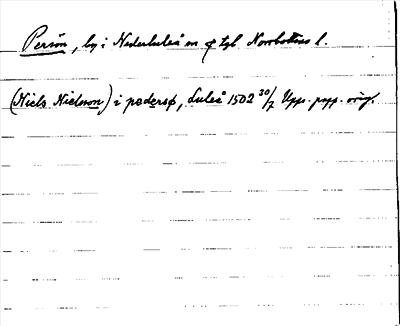 Persön, by i Nederluleå sn o tgl Norrbottens l.
(Niels Nielsson) i pedersø, Luleå 1502 30/7 Upps. papp. orig.